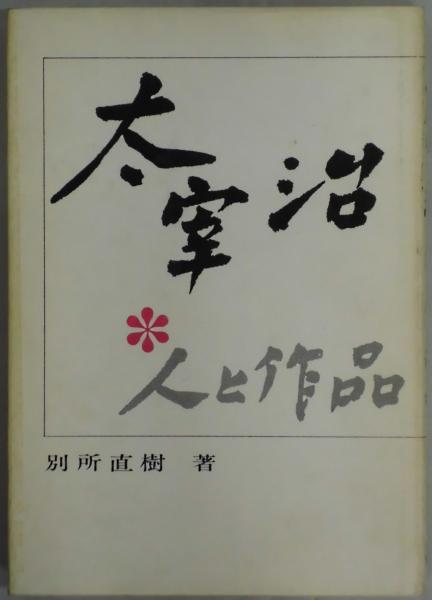 太宰治
*人と作品
別所直樹 著